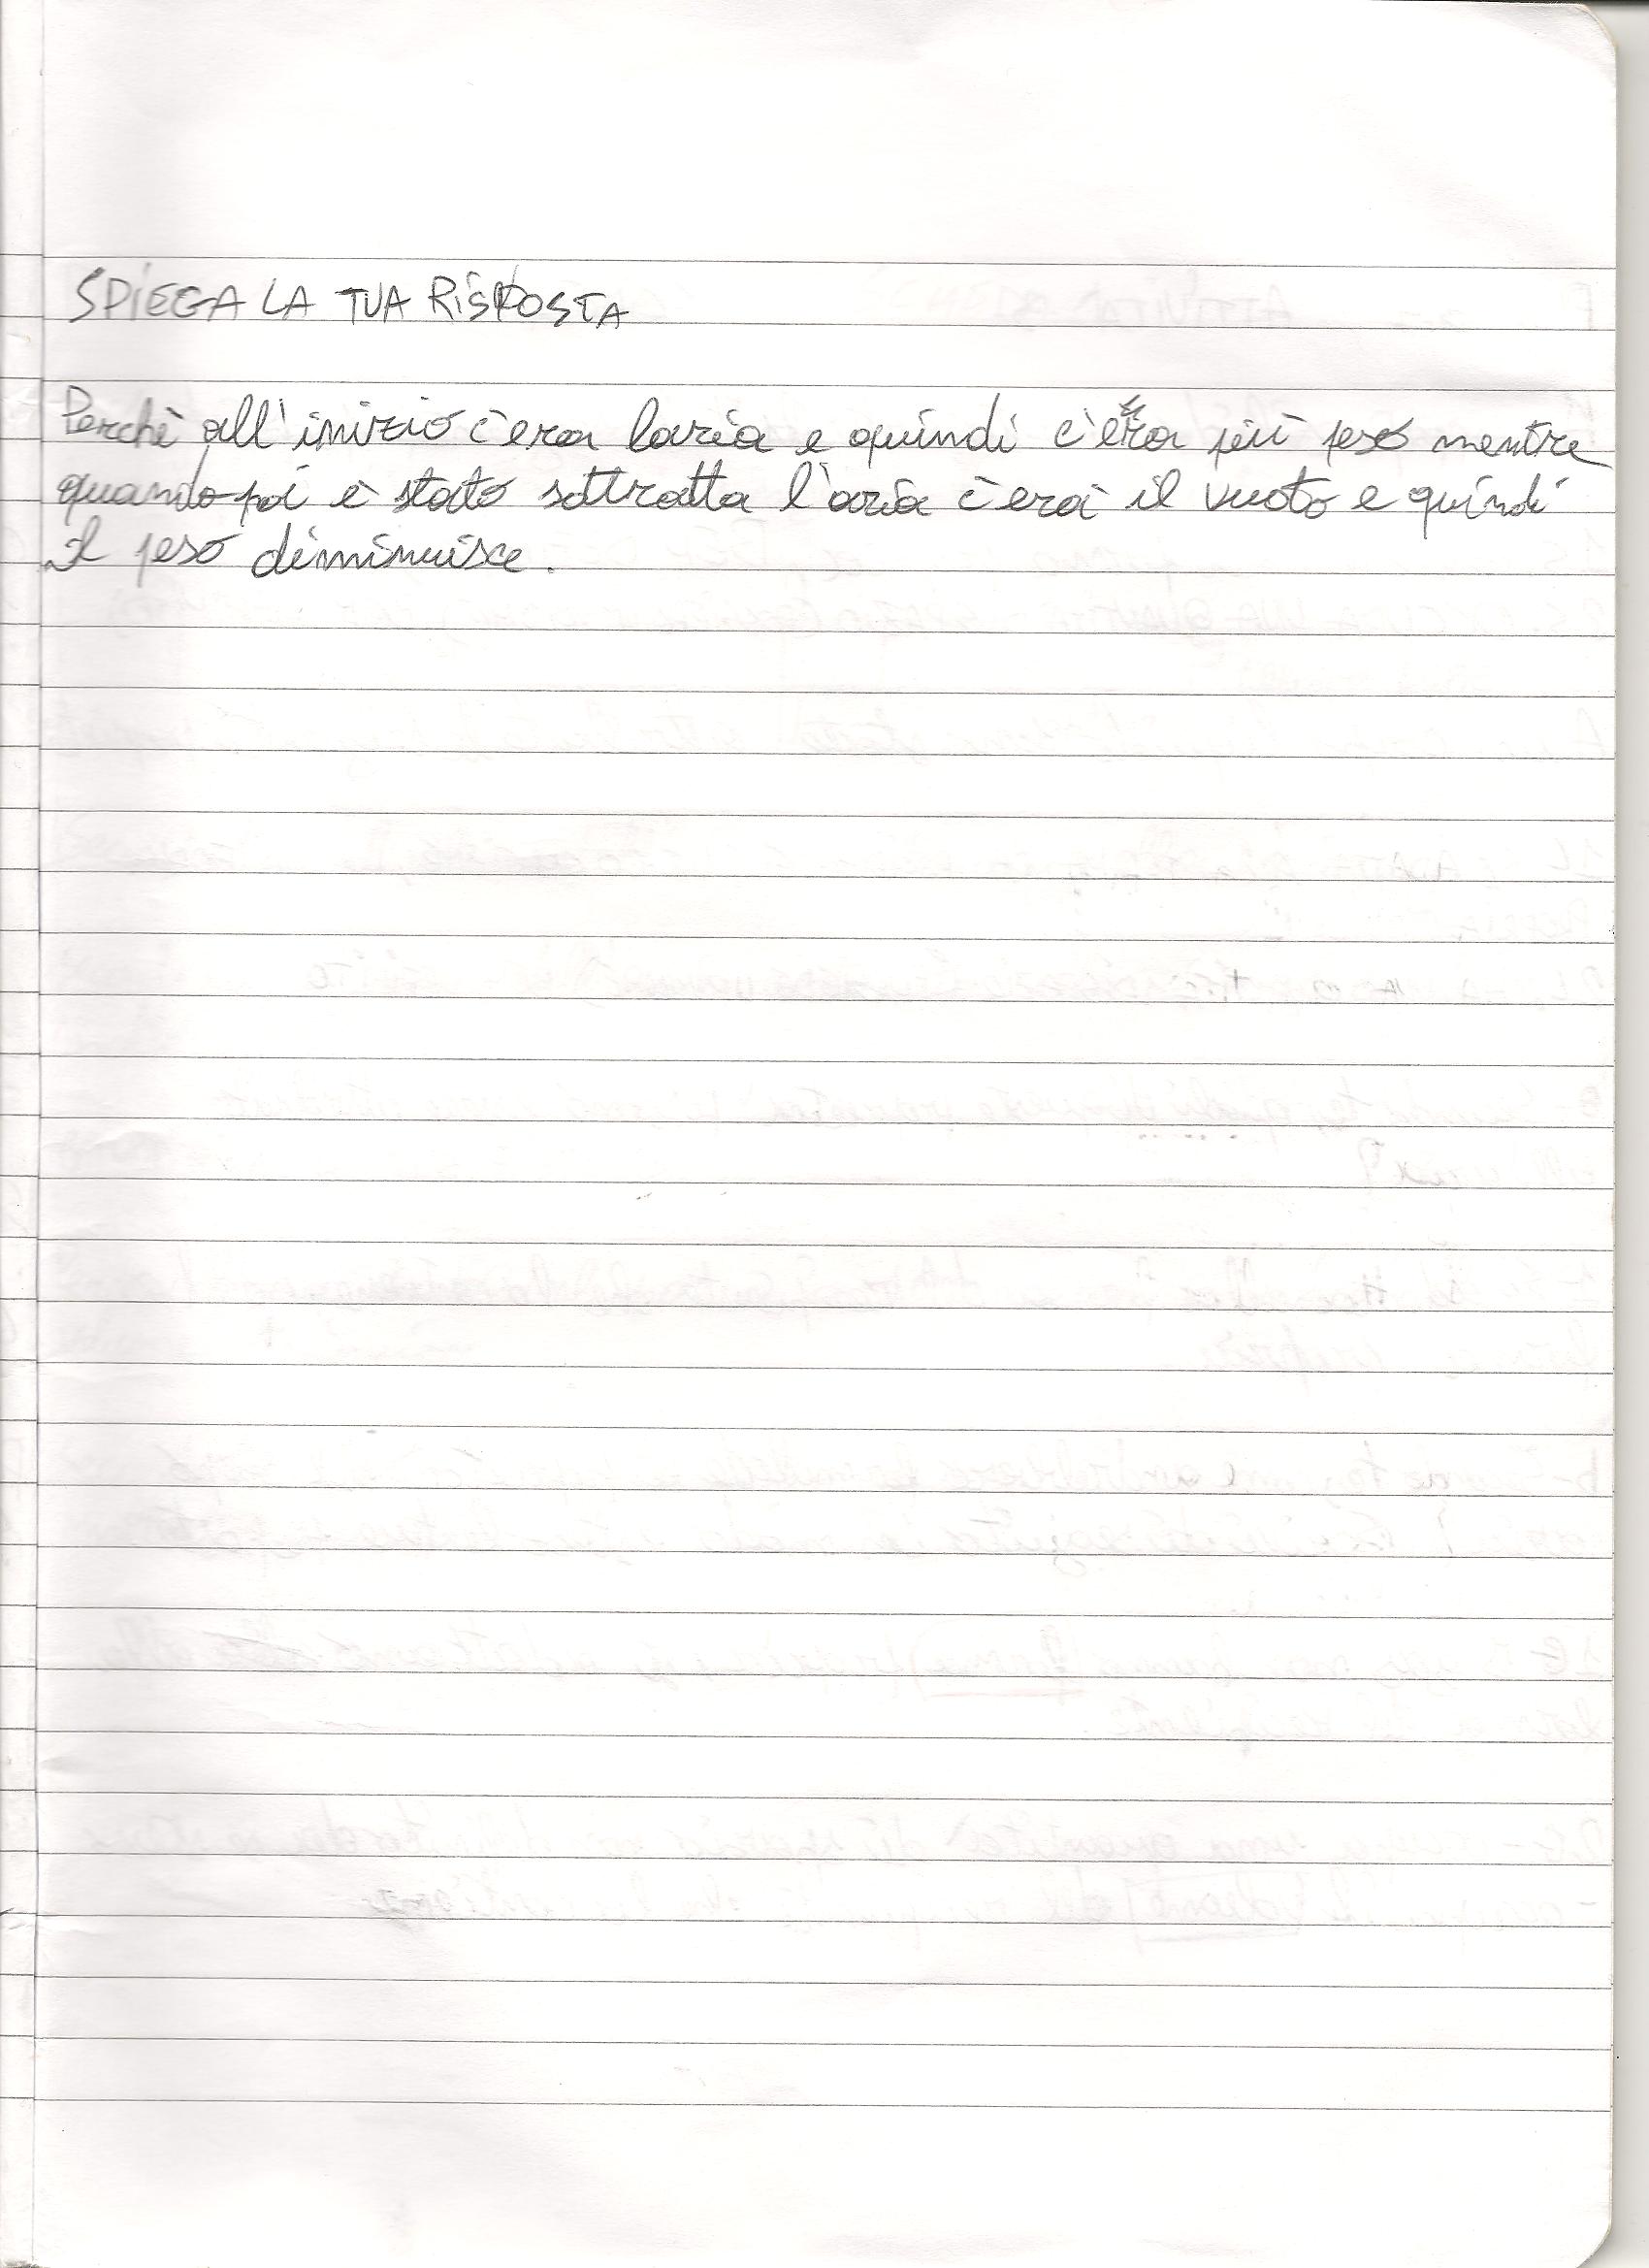 SPIEGA LA TUA RISPOSTA
Perchè all'inizio c'era l'aria e quindi c'era più peso mentre
quando poi è stato sottratta l'aria c'era il vuoto e quindi
il peso diminuisce.